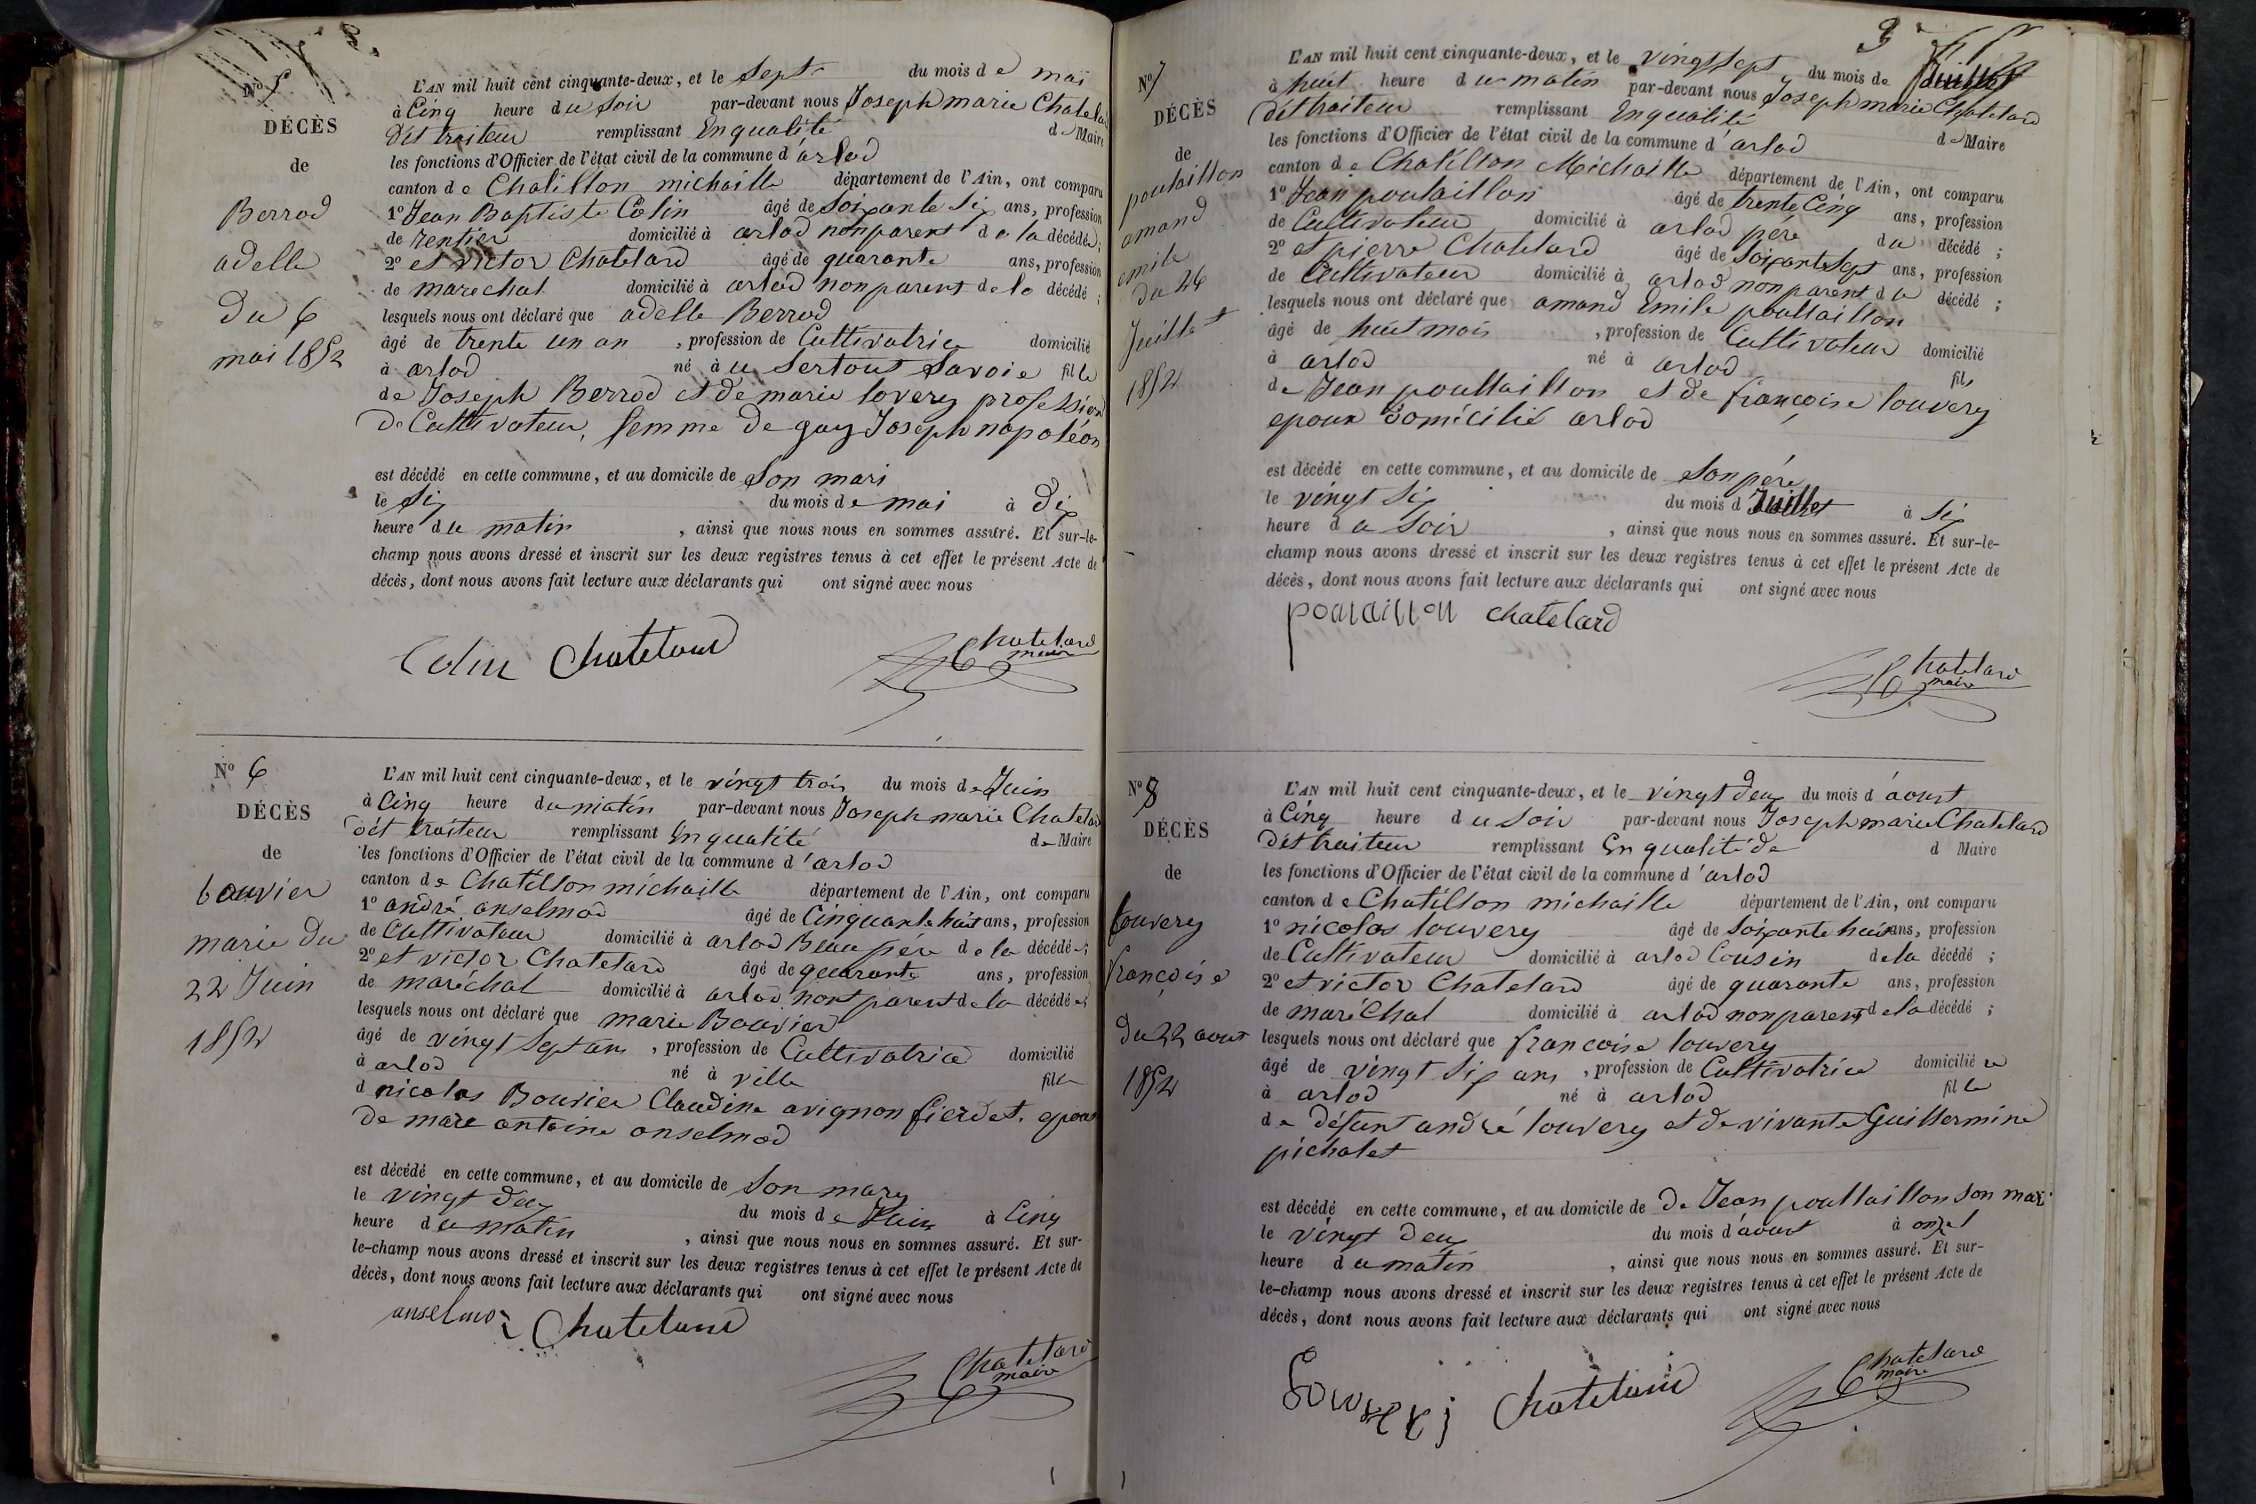 2.
N° 5
DÉCÈS
de
Berrod
adelle
du 6
mai 1852
L'AN mil huit cent cinquante-deux, et le sept du mois de mai
à Cinq heure du soir par-devant nous Joseph marie Chatelard
dit traiteur remplissant En qualité de Maire
les fonctions d'Officier de l'état civil de la commune d'arlod
canton de Chatillon michaille département de l'Ain, ont comparu
1° Jean Baptiste Colin âgé de soixante six ans, profession
de rentier domicilié à arlod non parent de la décédée;
2° et victor Chatelard âgé de quarante ans, profession
de marechal domicilié à arlod non parent de la décédé;
lesquels nous ont déclaré que adelle Berrod
âgé de trente un an, profession de Cultivatrice domicilié
à arlod né à u sertout Savoie fille
de Joseph Berrod et de marie lovery profession
De Cultivateur, femme de gay Joseph napoléon
est décédé en cette commune, et au domicile de son mari
le six du mois de mai à dix
heure du matin, ainsi que nous nous en sommes assuré. Et sur-le-
champ nous avons dressé et inscrit sur les deux registres tenus à cet effet le présent Acte de
décès, dont nous avons fait lecture aux déclarants qui ont signé avec nous
Colin Chatelard Chatelard
maire
N° 6
DÉCÈS
de
bouvier
marie du
22 Juin
1852
L'AN mil huit cent cinquante-deux, et le vingt trois du mois de Juin
à Cinq heure du matin par-devant nous Joseph marie Chatelard
dit traiteur remplissant En qualité de Maire
les fonctions d'Officier de l'état civil de la commune d'arlod
canton de Chatillon michaille département de l'Ain, ont comparu
1° andré anselmod âgé de Cinquante huit ans, profession
de Cultivateur domicilié à arlod Beau père de la décédée;
2° et victor Chatelard âgé de quarante ans, profession
de maréchal domicilié à arlod nont parent de la décédée;
lesquels nous ont déclaré que marie Bouvier
âgé de vingt sept ans, profession de Cultivatrice domicilié
à arlod né à ville fille
d nicolas Bouvier Claudine avignon fierdet. epous
De marc antoine anselmod
est décédé en cette commune, et au domicile de son mary
le vingt deux du mois de Juin à Cinq
heure du matin, ainsi que nous nous en sommes assuré. Et sur-
le-champ nous avons dressé et inscrit sur les deux registres tenus à cet effet le présent Acte de
décès, dont nous avons fait lecture aux déclarants qui ont signé avec nous
anselmod Chatelard
Chatelard
maire
3
N° 7
DÉCÈS
de
poutaillon
amand
emile
du 26
Juillet
1852
L'AN mil huit cent cinquante-deux, et le vingt sept du mois de Juillet
à huit heure du matin par-devant nous Joseph marie Chatelard
dit traiteur remplissant En qualité de Maire
les fonctions d'Officier de l'état civil de la commune d'arlod
canton de Chatillon Michaille département de l'Ain, ont comparu
1° Jean poutaillon âgé de trente Cinq ans, profession
de Cultivateur domicilié à arlod père du décédé;
2° et pierre Chatelard âgé de soixante sept ans, profession
de Cultivateur domicilié à arlod non parent du décédé;
lesquels nous ont déclaré que amand Emile poultaillon
âgé de huit mois, profession de Cultivateur domicilié
à arlod né à arlod fils
de Jean poultaillon et de françoise louvery
epoux domicilié arlod
est décédé en cette commune, et au domicile de son père
le vingt six du mois d Juillet à six
heure du soir, ainsi que nous nous en sommes assuré. Et sur-le-
champ nous avons dressé et inscrit sur les deux registres tenus à cet effet le présent Acte de
décès, dont nous avons fait lecture aux déclarants qui ont signé avec nous
poutaillon chatelard
Chatelard
maire
N° 8
DÉCÈS
de
louvery
françoise
du 22 aout
1852
L'AN mil huit cent cinquante-deux, et le vingt deux du mois d'aoust
à Cinq heure du soir par-devant nous Joseph marie Chatelard
dit traiteur remplissant En qualité de d Maire
les fonctions d'Officier de l'état civil de la commune d'arlod
canton de Chatillon michaille département de l'Ain, ont comparu
1° nicolas louvery âgé de soixante huit ans, profession
de Cultivateur domicilié à arlod Cousin de la décédé;
2° et victor Chatelard âgé de quarante ans, profession
de maréchal domicilié à arlod non parent de la décédé;
lesquels nous ont déclaré que françoise louvery
âgé de vingt six ans, profession de Cultivatrice domiciliée
à arlod né à arlod fille
de défunt andré louvery et de vivante Guillermine
pichalet
est décédé en cette commune, et au domicile de De Jean poultaillon son mari
le vingt deux du mois d'aoust à onze
heure du matin, ainsi que nous nous en sommes assuré. Et sur-
le-champ nous avons dressé et inscrit sur les deux registres tenus à cet effet le présent Acte de
décès, dont nous avons fait lecture aux déclarants qui ont signé avec nous
Chatelard
Chatelard
maire